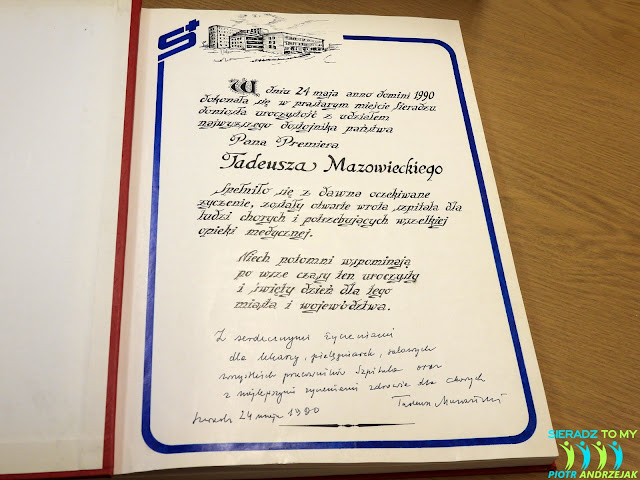 S+
W dniu 24 maja anno domini 1990
dokonała się w prastarym mieście Sieradzu
doniosła uroczystość z udziałem
najwyższego dostojnika państwa
Pana Premiera
Tadeusza Mazowieckiego
Spełniło się z dawna oczekiwane
życzenie, zostały otwarte wrota szpitala dla
ludzi chorych i potrzebujących wszelkiej
opieki medycznej.
Niech potomni wspominają
po wsze czasy ten uroczysty
i święty dzień dla tego
miasta i województwa.
Z serdecznymi życzeniami
dla lekarzy, pielęgniarek, salowych
wszystkich pracowników Szpitala oraz
z najlepszymi życzeniami zdrowia dla chorych
Sieradz 24 maja 1990 Tadeusz Mazowiecki
SIERADZ TO MY
PIOTR ANDRZEJAK